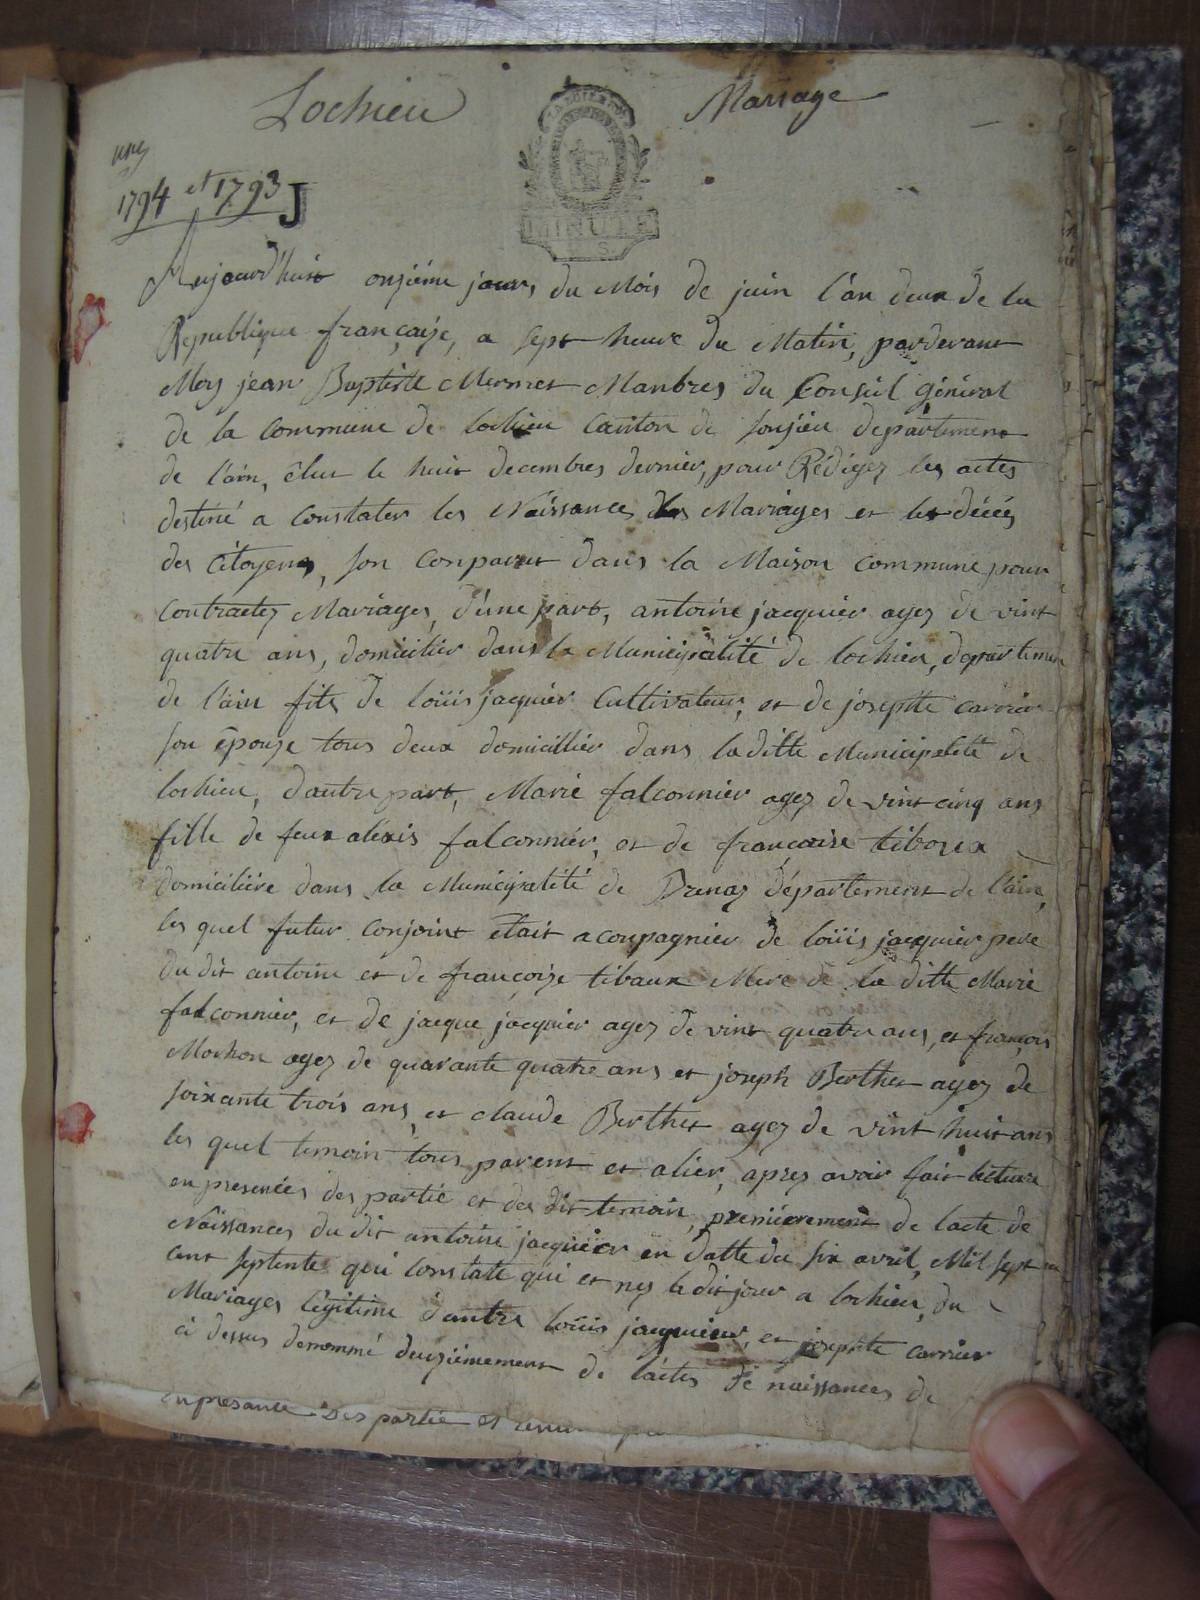 Lochieu
Mariage
1794 et 1793 J
LA LOI ET
MINUTE
S.
Aujourd'huit onzième jours du Mois de juin l'an deux de la
République françaize, a sept heure du Matin, pardevant
Moy jean Baptiste Mermet Manbres du Conseil général
de la commune de lochieu canton de sonjieu departement
de l'ain, élut le huit decembres dernier, pour Rédigez les actes
destiné a constater les Naissances des Mariages et les décés
des citoyens, son conparut dans la Maison commune pour
contractez Mariages, d'une part, antoine jacquier agez de vint
quatre ans, domicilier dans la Municipalité de lochieu, departemen
de l'ain fils de loüis jacquier Cultivateur, et de josephte carrier
son épouze tous deux domicillier dans laditte Municipalité de
lochieu, d'autre part, Marie falconnier agez de vint cinq ans
fille de feux alexis falconnier, et de françoise tiboux
domicilière dans la Municipalité de Brenaz département de l'ain,
les quel futur conjoint était acoupagnier de loüis jacquier pere
du dit antoine et de françoize tibaux Mere de la ditte Marie
falconnier, et de jacque jacquier agez de vint quatre ans, et françois
Mochon agez de quarante quatre ans et joseph Berthet agez de
soixante trois ans, et claude Berthet agez de vint huit ans
les quel temoin tous parent et alier, apres avoir fait lecture
en presences des partie et des dit temoin, premierement de lacte de
Naissances du dit antoine jacquier en datte du six avril, Mil sept
cent septente qui constate qui et nez le dit jour a lochieu, du
Mariages légitime d'antre loüis jacquier, et josephte carrier
ci dessus denommé deuziémement de l'actes de naissances de
en presance des partie et